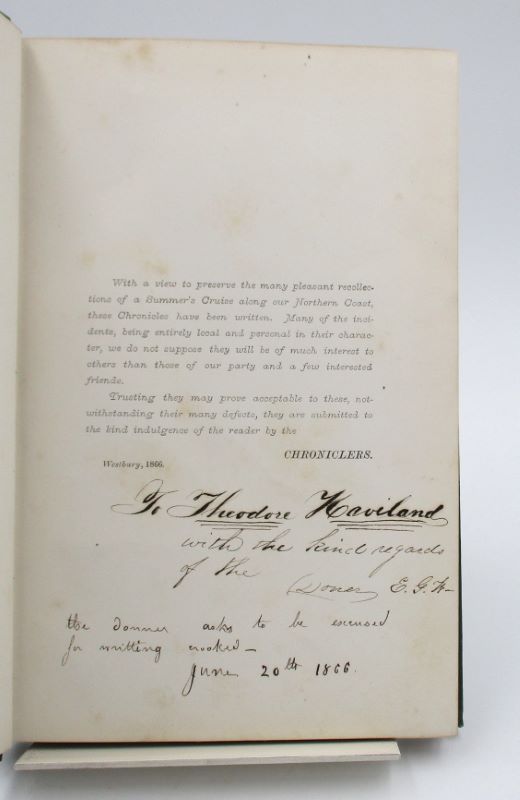 With a view to preserve the many pleasant recollec-
tions of a Summer's Cruise along our Northern Coast,
these Chronicles have been written. Many of the inci-
dents, being entirely local and personal in their charac-
ter, we do not suppose they will be of much interest to
others than those of our party and a few interested
friends.
Trusting they may prove acceptable to these, not-
withstanding their many defects, they are submitted to
the kind indulgence of the reader by the
CHRONICLERS.
Westbury, 1866.
To Theodore Haviland
with the kind regards
of the
Doner E. G. H-
the donner asks to be excused
for writting crooked-
June 20th 1866.